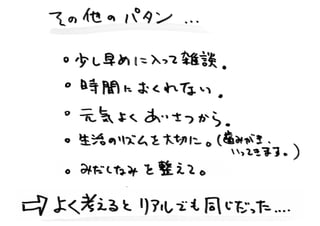 その他のパタン…
○少し早めに入って雑談。
○時間におくれない。
○元気よくあいさつから。
○生活のリズムを大切に。(歯みがき、
いってきます。)
○みだしなみを整えて。
⇨よく考えるとリアルでも同じだった....